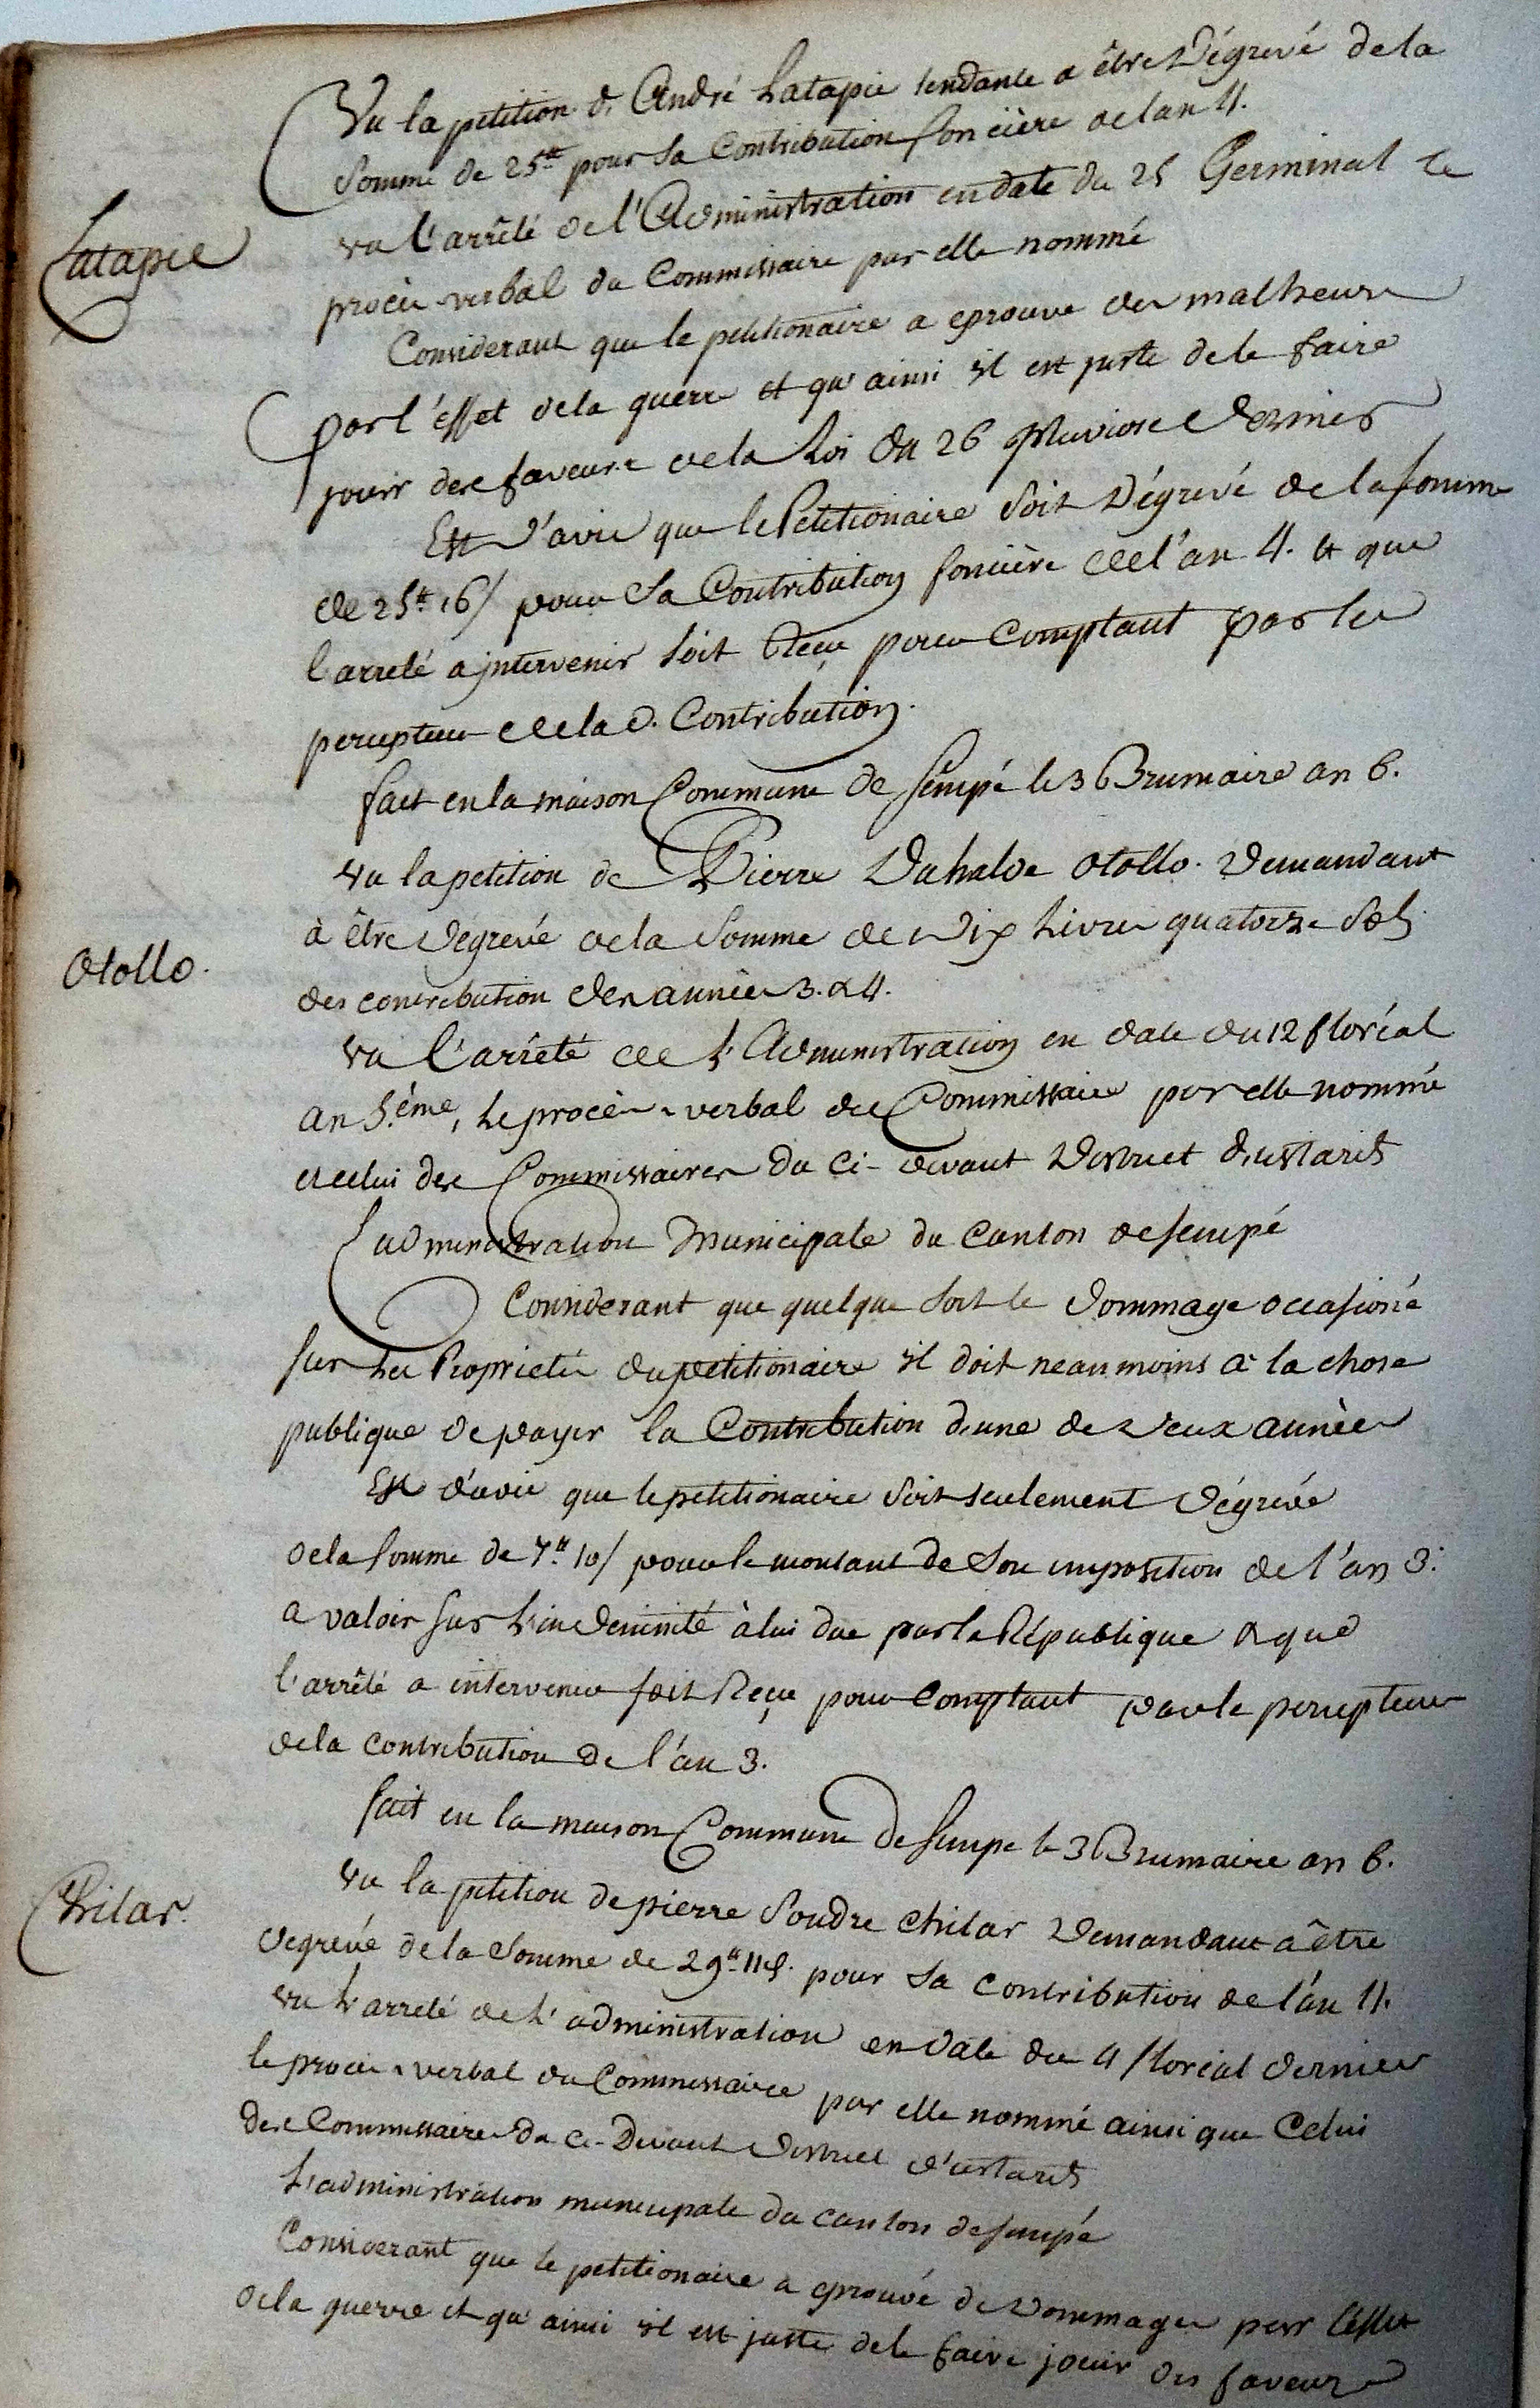 Vu la petition d'André Latapie tendante a être Dégrevé de la
Somme de 25₶ pour sa Contribution fonciere de lan 4.
vu l'arrêlé de l'Administration en date du 25 Germinal Le
procès verbal du Commissaire par elle nommé
Latapie
Considerant que le petitionaire a eprouvé des malheurs
par l'effet de la guerre et qu'ainsi il est juste de le faire
jouir des faveurs de la Loi du 26 Pluviose Dernier
Est d'avis que le Petitionaire soit Dégrevé de la somme
de 25₶ 16/ pour sa Contribution fonciere de l'an 4. et que
l'arreté a jntervenir soit Reçu pour Comptant par le
percepteur de la d. Contribution.
fait en la maison Commune de Sempé le 3 Brumaire an 6.
Vu la petition de Pierre Duhalde Otollo. Demandant
à être Dégrevé de la Somme de Dix Livres quatorze Sols
Otollo.
des contribution des années 3. & 4.
Vu l'arrêté de l'Administration en date du 12 floréal
an 5.ème, Le procès-verbal du Commissaire par elle nommé
et celui des Commissaires du Ci-devant District d'ustarits
L'administration Municipale du Canton de Sempé
Considerant que quelque soit le Dommage occasioné
sur les Proprietés du petitionaire il doit neanmoins à la chose
publique de payer la Contribution d'une de deux années
Est d'avis que le petitionaire soit seulement Dégrévé
de la somme de 7.₶ 10/ pour le montant de son imposition de l'an 3.
a valoir sur l'indemnité à lui due par la République & que
l'arrêté a intervenir soit Reçu pour Comptant par le percepteur
de la contribution de l'an 3.
fait en la maison Commune de Sempé le 3 Brumaire an 6.
Vu la petition de pierre Soudre Chilar Demandant à être
Chilar.
Degrevé de la Somme de 29₶ 11s. pour sa contribution de l'an 4.
vu L'arreté de L'administration en date du 4 floréal dernier
le procès-verbal du Commissaire par elle nommé ainsi que Celui
des Commissaires du Ci-Devant District d'ustarits
L'administration municipale du canton de Sempé
Considerant que le petitionaire a eprouvé de Dommages par l'effet
de la guerre et qu'ainsi il est juste de le faire jouir des faveurs